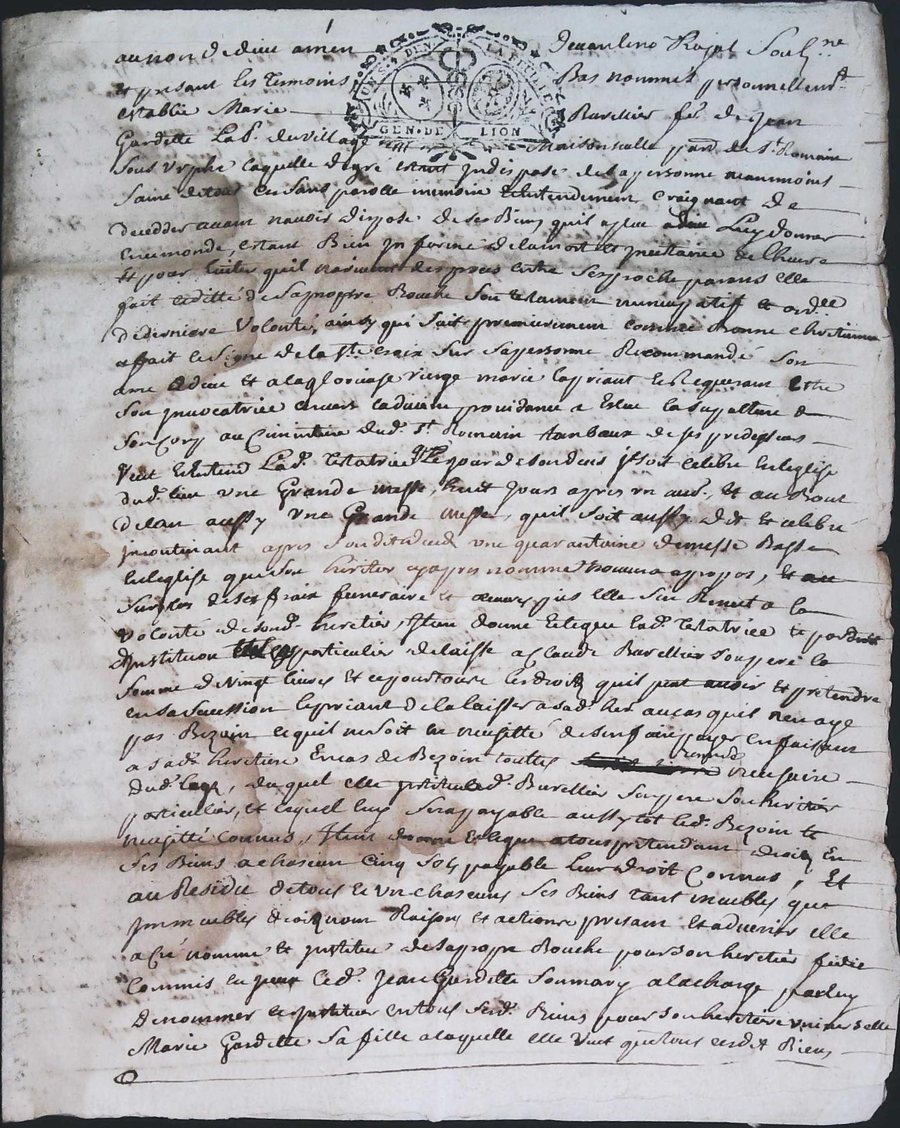 au nom de dieu amén devant le no.re Royal Souls.ne
et présant les temoins Bas nommés personnellem.t
establie Marie Barellier fe. de Jean
Gardette Lab. du village Maisonselle parr. de St. Romain
Sous Urphé laquelle de gré estant Indisposé de sa personne neanmoins
Saine de tous ces Sans parolle memoire et entendement, Craignant de
decedder avant n'avoir disposé de ses Biens qu'il a plue a dieu Luy donner
en ce monde, estant Bien In formé de la mort et Incertaine de l'heure
Et pour Eviter qu'il n'arrivent des proces entre Ses proche parens elle
fait et ditté de sa propre Bouche Son testament nuncupatif et ord.
de derniere Volonté, ainsy qui suit premierement comme Bonne Chretienne
a fait le Signe de la Ste croix Sur Sa personne Recommandé Son
ame a dieu et a la glorieuse Vierge marie la priant et Requerant Estre
Son Invocatrice envers la divine providance a Eslue la Sepulture de
Son Corps au Cimmetiere dud. St. Romain tombeaux de ses predecesseurs
Veut et entend Lad. testatrice q. le jour de son deuis Il soit celebré en l'eglise
dud. lieu une Grande messe, huit Jours apres un autre, et au Bout
de l'an aussy une Grande messe, qu'il soit aussy dit et celebré
Incontinant apres Sondit deceds une quarantaine de messe Basse
en l'eglise que son heritier cy apres nommé a propos, et au
Surplus de ses fraix funeraire et oeuvres pies elle S'en Remet a la
Volonté de sond. heretier, Item donne et legue lad. testatrice par droit
d'Institution particulier delaisse a Claude Barellier Son pere la
Somme de Vingt livres et ce pour tous les droits qu'il peut avoir et prétendre
en Sa Sucession le priant de la laisser a sad. her. au cas qu'il n'en aye
pas Bezoin et qu'il ne soit en necessité de s'en faire payer en faisant
a sad. heretiere En cas de Bezoin toutes remise necessaire
dud. legs, duquel elle Institue led. Barellier Son pere Son heritier
particulier, et lequel luy Sera payable aussy tot led. Bezoin et
necessité Connus, Item donne et legue a tous pretendant droits En
Ses Biens a chacun Cinq Sols payable leur droit Connus, Et
au Residu de tous et un chacuns Ses Biens tant meubles que
Immeubles droits noms Raisons et actions presant et advenir elle
a Cré nommé et Institué de sa propre Bouche pour Son heretier fidei
Commis led. Jean Gardette Son mary a la charge par luy
de nommer et Instituer en tous Sesd. Biens pour Son heretiere universelle
Marie Gardette Sa fille a laquelle elle Veut que tous cesdit Biens